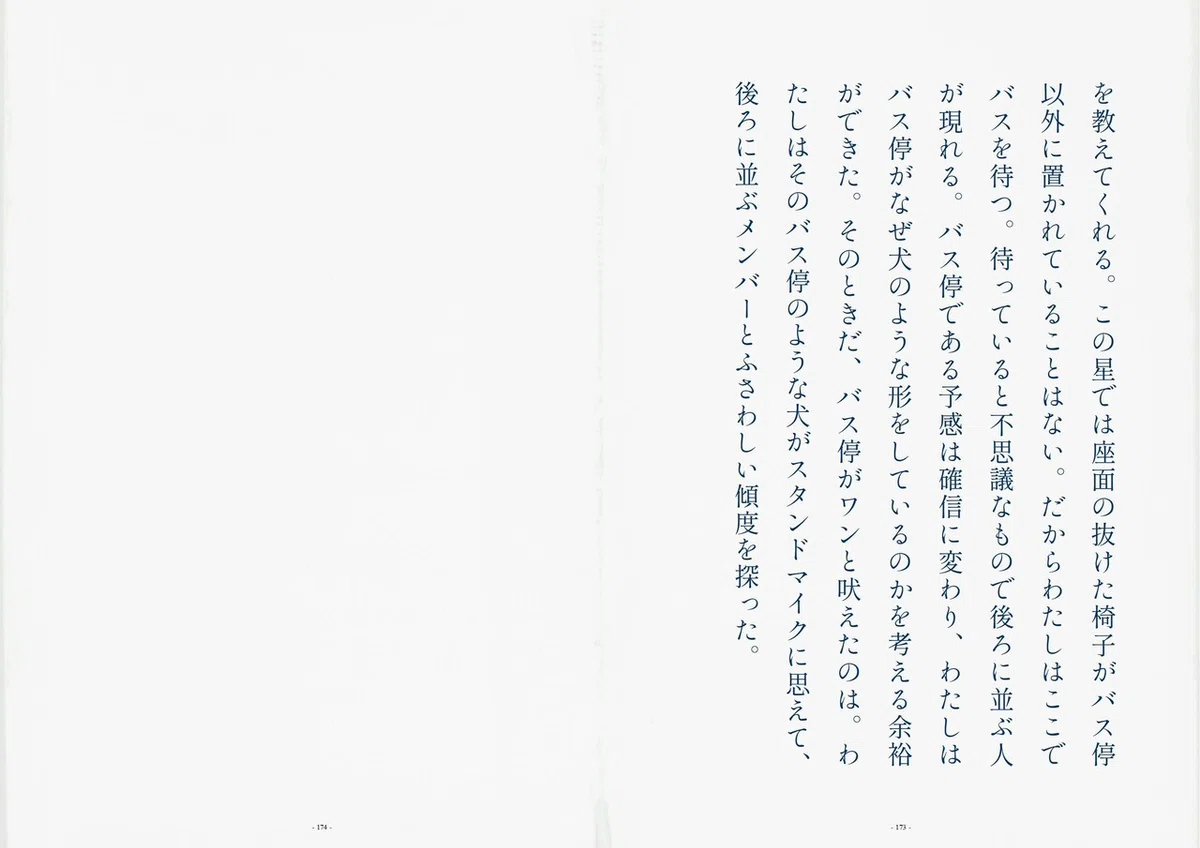 を教えてくれる。この星では座面の抜けた椅子がバス停
以外に置かれていることはない。だからわたしはここで
バスを待つ。待っていると不思議なもので後ろに並ぶ人
が現れる。バス停である予感は確信に変わり、わたしは
バス停がなぜ犬のような形をしているのかを考える余裕
ができた。そのときだ、バス停がワンと吠えたのは。わ
たしはそのバス停のような犬がスタンドマイクに思えて、
後ろに並ぶメンバーとふさわしい傾度を探った。
- 173 -
- 174 -